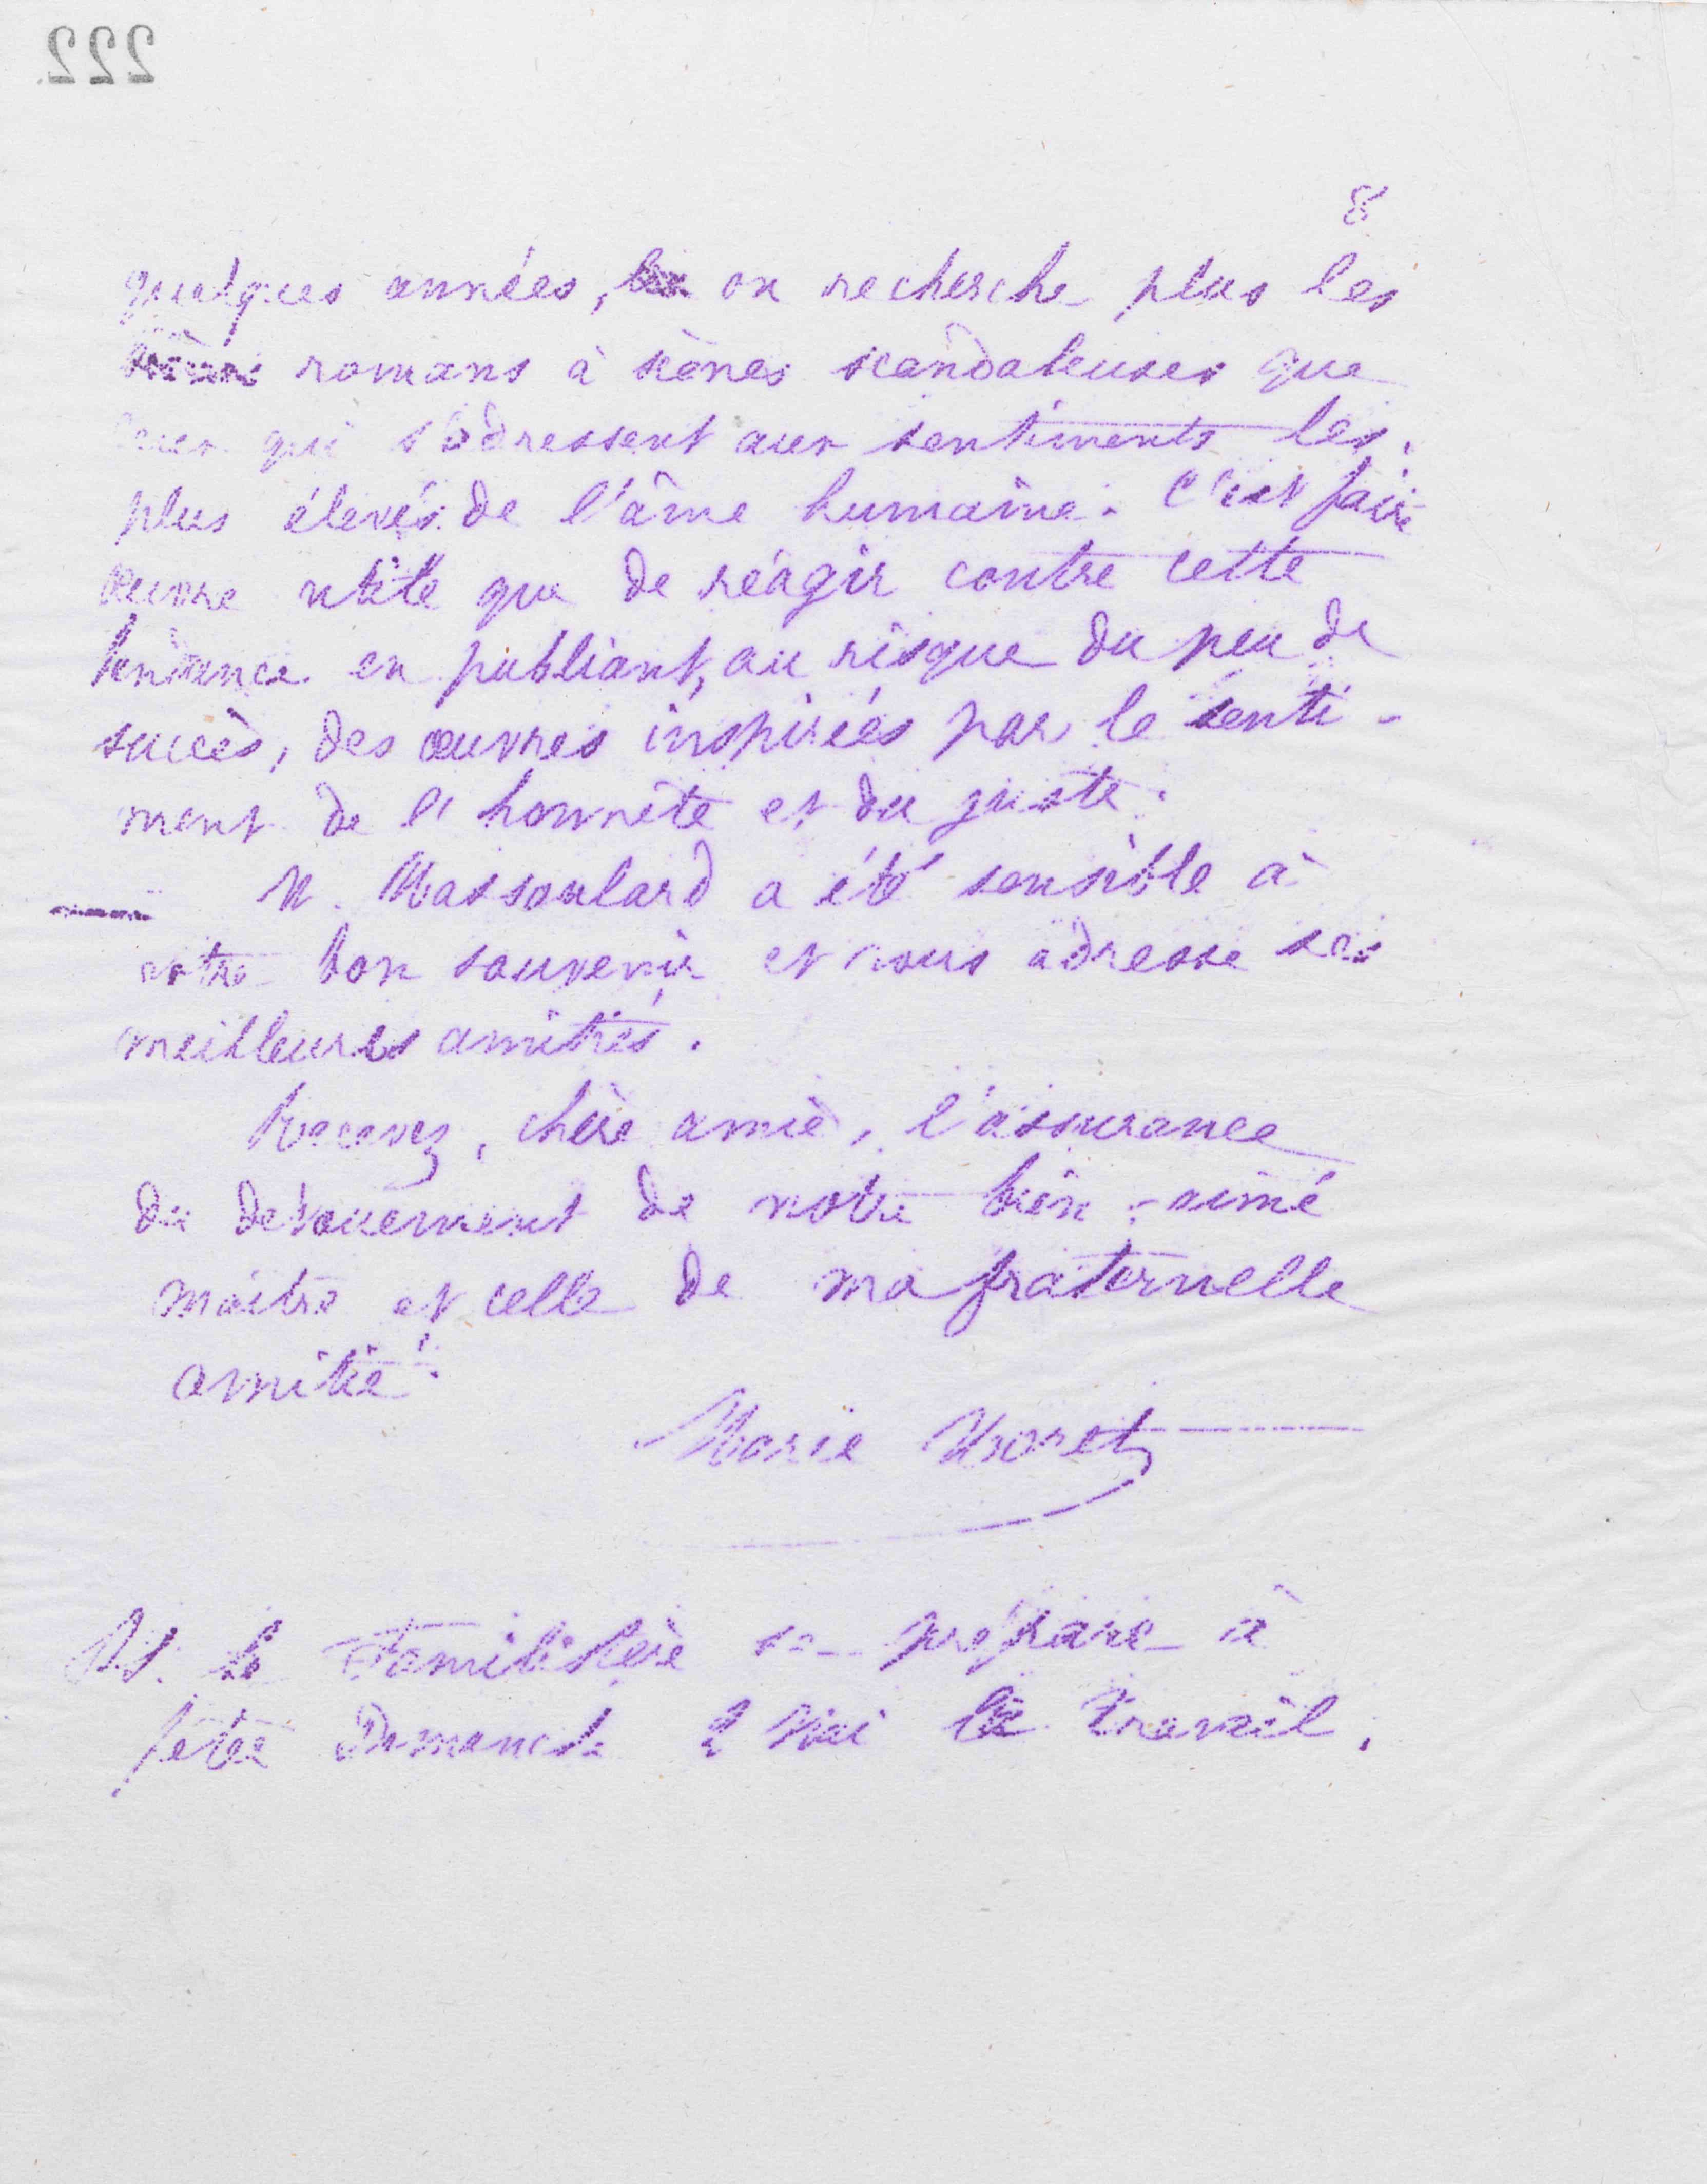 222
8
quelques années, on recherche plus les
romans à scènes scandaleuses que
ceux qui s'adressent aux sentiments les
plus élevés de l'âme humaine. C'est faire
œuvre utile que de réagir contre cette
tendance en publiant, au risque du peu de
succès, des œuvres inspirées par le senti-
ment de l'honnête et du juste.
M. Massoulard a été sensible à
votre bon souvenir et vous adresse ses
meilleures amitiés.
Recevez, chère amie, l'assurance
du dévouement de notre bien-aimé
maître et celle de ma fraternelle
amitié.
Marie Moret
P.S. Le Familistère se prépare à
fêter Dimanche 2 Mai le travail.